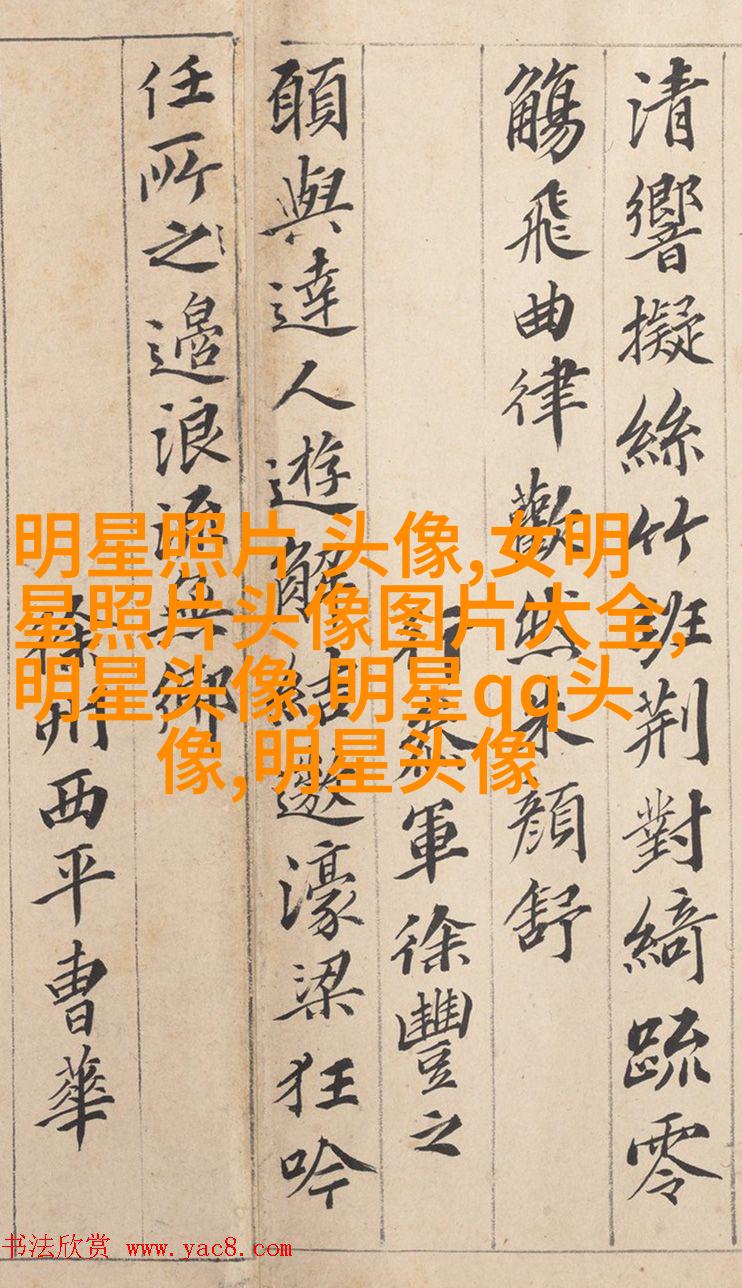 清響擬絲竹班荆對綺疏零
觴飛曲律歡然朱顔舒
行參軍徐豐之
願與達人遊解結遨濠梁狂吟
任所之邉浪無鄉
徐州西平曹華
明星照片,头像,女明
星照片头像图片大全,
明星头像,明星qq头
像,明星头像
书法欣赏 www.yac8.com